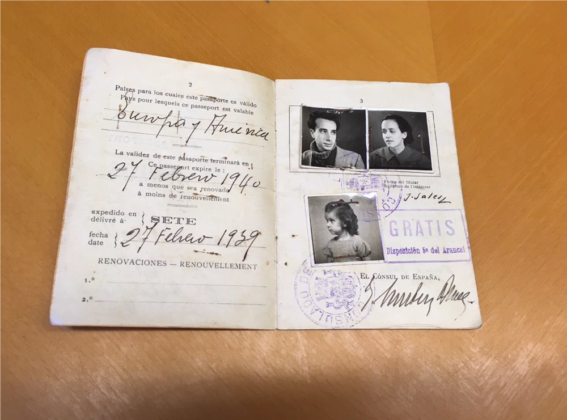 2
Países para los cuales este pasaporte es válido
Pays pour lesquels ce passeport est valable
Europa y América
La validez de este pasaporte terminará en
Ce passeport expire le :
27 Febrero 1940
a menos que sea renovado
à moins de renouvellement
expedido en
délivré à
SETE
fecha
date
27 Febrero 1939
RENOVACIONES — RENOUVELLEMENT
1.°
2.°
3
GRATIS
Disposición 5ª del Arancel
EL CÓNSUL DE ESPAÑA,
CONSULADO DE